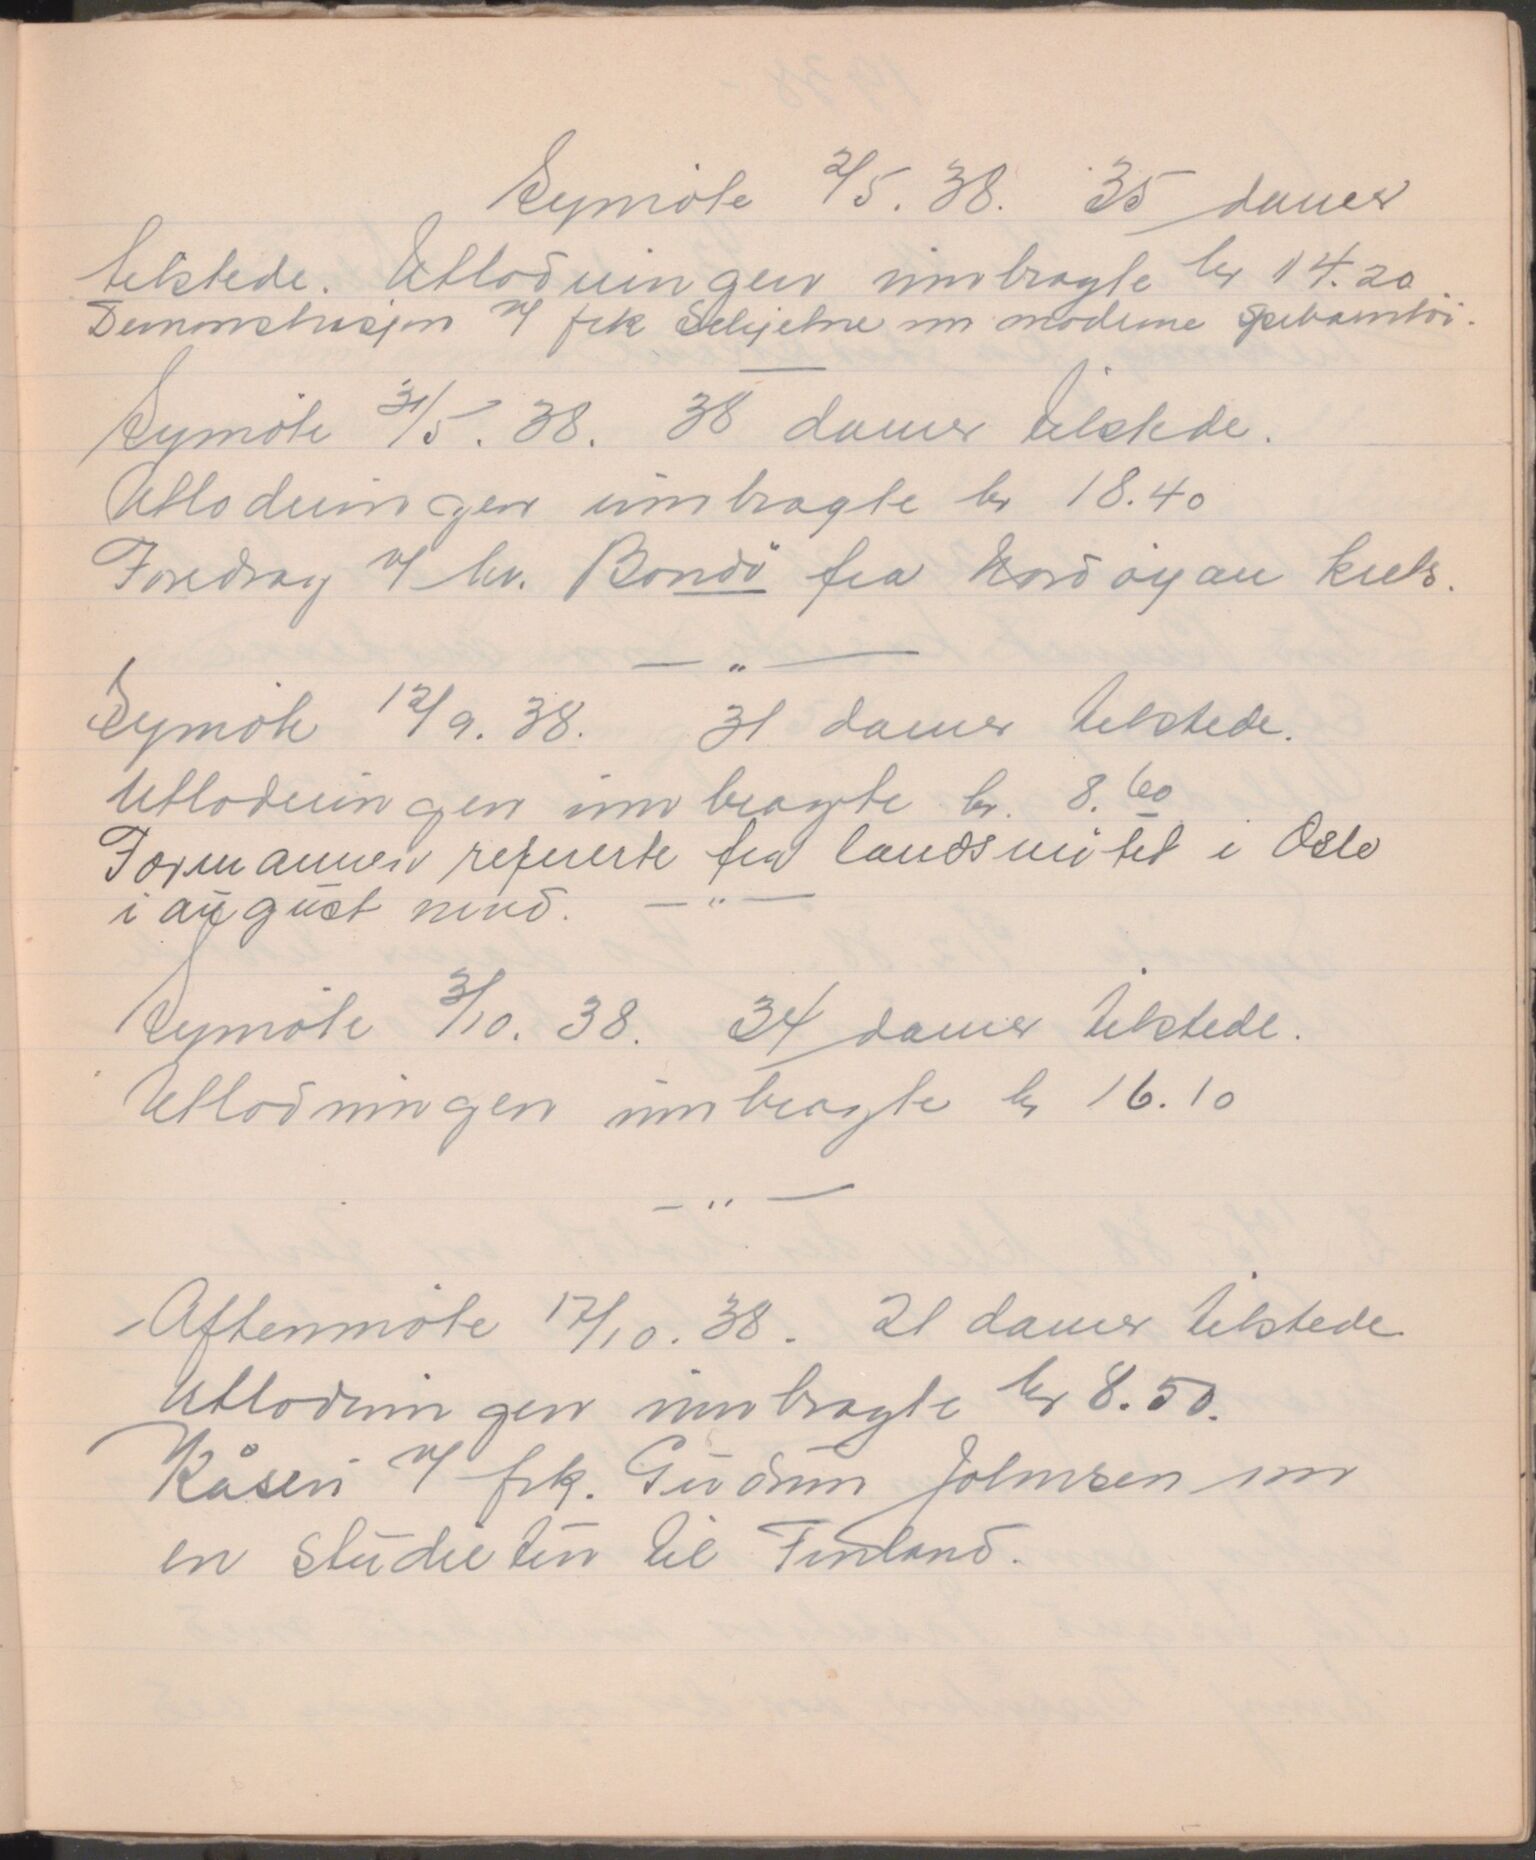 Symöte 2/5. 38. 35 damer
tilstede. Utlodningen innbragte kr 14.20
Demonstrasjon v/ frk Schjelne om moderne spebarntöi.
Symöte 31/5. 38. 38 damer tilstede.
Utlodningen innbragte kr 18.40
Foredrag v/ hr. Bondö fra Nordöyan kuls.
— " —
Symöte 12/9. 38. 31 damer tilstede.
Utlodningen innbragte kr. 8.60
Formannen refererte fra landsmötet i Oslo
i august mnd. — " —
Symöte 3/10. 38. 34 damer tilstede.
Utlodningen innbragte kr 16.10
— " —
Aftenmöte 17/10. 38. 21 damer tilstede
Utlodningen innbragte kr 8.50.
Kåseri v/ frk. Gudrun Johnsen om
en studietur til Finland.